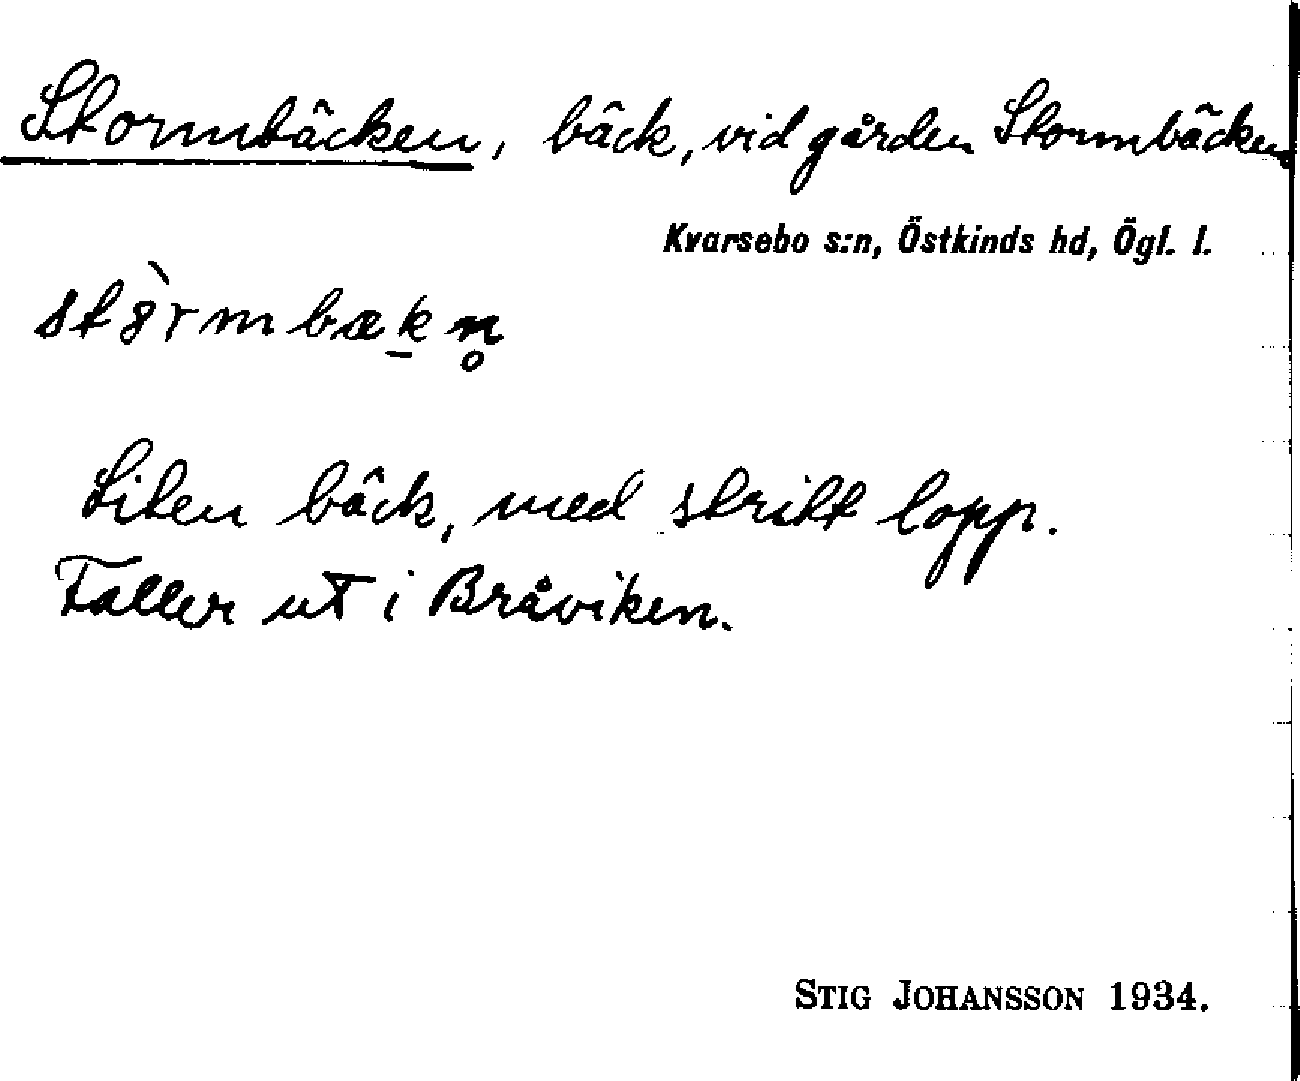 Stormbäcken, bäck, vid gården Stormbäcken
Kvarsebo s:n, Östkinds hd, Ögl. l.
st8̀rmbæk̠n̥
Liten bäck, med stritt lopp.
Faller ut i Bråviken.
STIG JOHANSSON 1934.